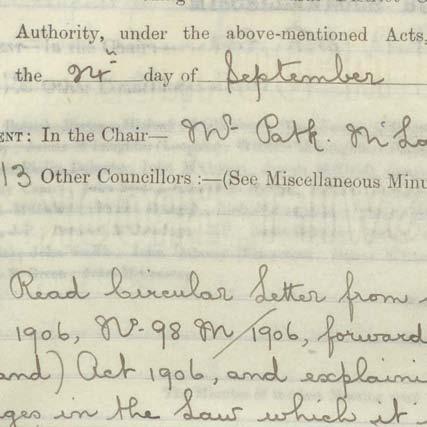 Authority, under the above-mentioned Acts,
the 24th day of September
ENT: In the Chair— Mr Patk. McLo
13 Other Councillors :—(See Miscellaneous Minu
Read Circular Letter from
1906, No. 98 M/1906, forward
and) Act 1906, and explaini
ges in the Law which it